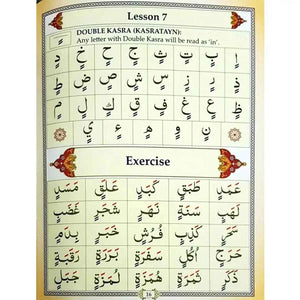 Lesson 7
DOUBLE KASRA (KASRATAYN):
Any letter with Double Kasra will be read as 'in'.
اٍ بٍ تٍ ثٍ جٍ حٍ خٍ دٍ
ذٍ رٍ زٍ سٍ شٍ صٍ ضٍ طٍ
ظٍ عٍ غٍ فٍ قٍ كٍ لٍ مٍ
نٍ وٍ هٍ ءٍ يٍ
Exercise
عَمَدٍ طَبَقٍ كَبَدٍ عَلَقٍ مَسَدٍ
لَهَبٍ سَنَةٍ نَهَرٍ شَجَرٍ غَضَبٍ
سَخَرٍ كَذِبٍ فُرُشٍ خَبَرٍ بِدَمٍ
حَرَجٍ اُكُلٍ سَفَرَةٍ بَرَرَةٍ رَقَبَةٍ
ذَكَرٍ ثَمَرَةٍ هُمَزَةٍ لُمَزَةٍ جَبَلٍ
16